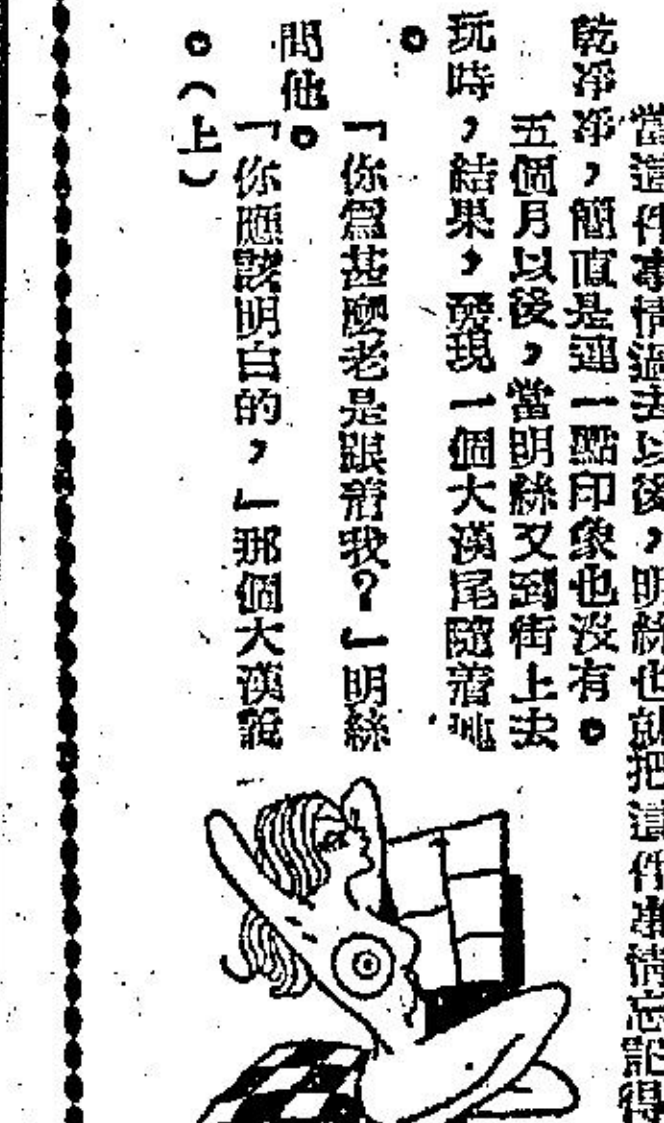 當這件事情過去以後，明絲也就把這件事情忘記得
乾凈凈，簡直是連一點印象也沒有。
五個月以後，當明絲又到街上去
玩時，結果，發現一個大漢尾隨着她
。
「你爲甚麼老是跟着我？」明絲
問他。
「你應該明白的，」那個大漢說
。（上）